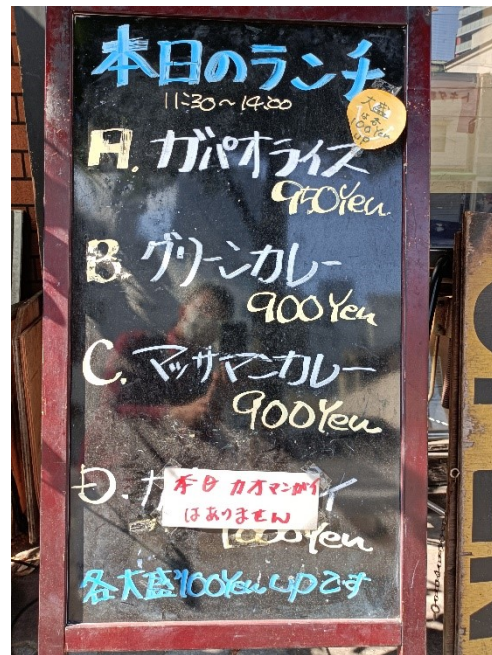 本日のランチ
11:30〜14:00
大盛
は
100Yen
up
A. ガパオライス
950Yen
B. グリーンカレー
900Yen
C. マッサマンカレー
900Yen
D. カ イ
本日 カオマンガイ
はありません
1000Yen
各大盛100Yen upです